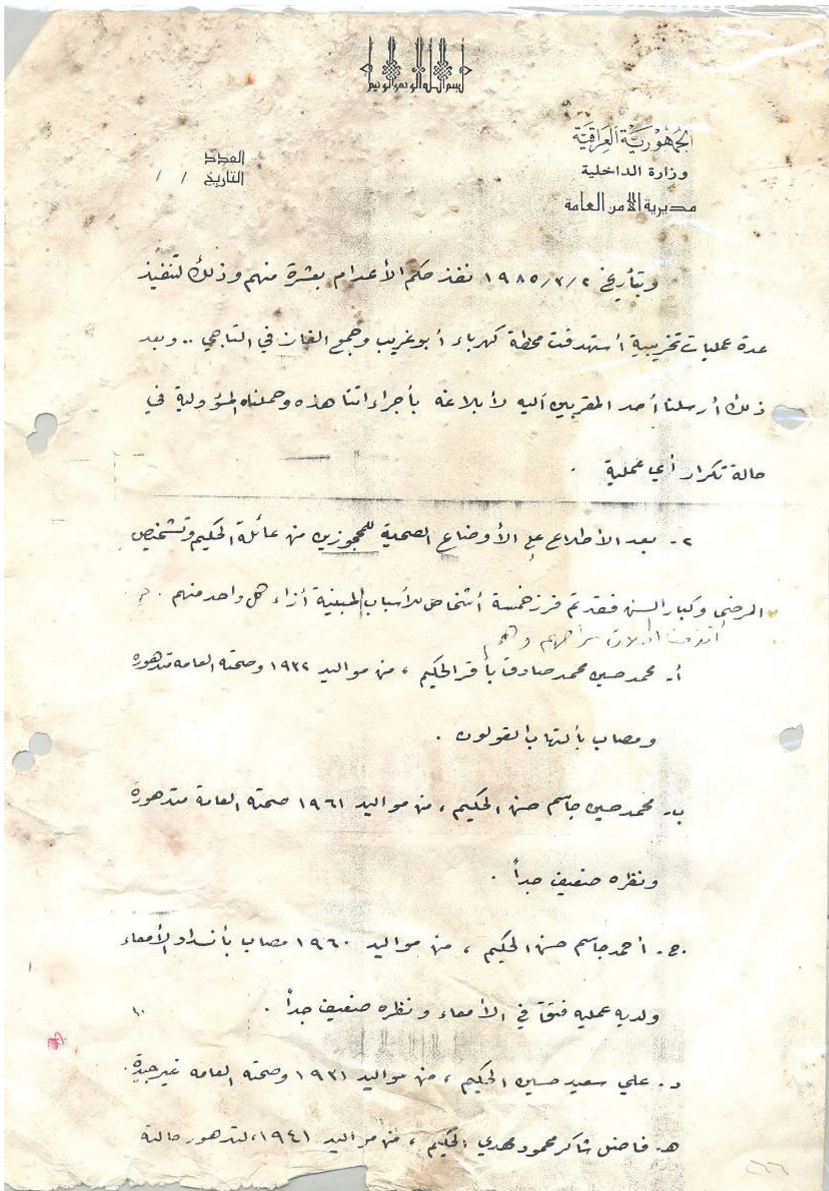 بسم الله الرحمن الرحيم
الجمهورية العراقية
وزارة الداخلية
مديرية الامن العامة
العدد
التاريخ / /
وبتأريخ ١٩٨٥/٣/٢ نفذ حكم الأعدام بعشرة منهم وذلك لتنفيذ
عدة عمليات تخريبية أستهدفت محطة كهرباء أبوغريب ومجمع الغاز في التاجي .. وبعد
ذلك أرسلنا أحد المقربين اليه لأبلاغه بأجراءاتنا هذه وحملناه المسؤولية في
حالة تكرار أي عملية .
٢- بعد الأطلاع على الأوضاع الصحية للمحجوزين من عائلة الحكيم وتشخيص
المرضى وكبار السن فقد تم فرز خمسة أشخاص للأسباب المبينة أزاء كل واحد منهم .
وهم
أ- محمد حسين محمد صادق باقر الحكيم ، من مواليد ١٩٣٢ وصحته العامه متدهوره
ومصاب بألتهاب القولون .
ب- محمد حسين جاسم حسن الحكيم ، من مواليد ١٩٦١ صحته العامة متدهورة
ونظره ضعيف جداً .
ج- أحمد جاسم حسن الحكيم ، من مواليد ١٩٦٠ مصاب بأنسداد الأمعاء
ولديه عمليه فتق في الأمعاء ونظره ضعيف جداً .
د- علي سعيد حسين الحكيم ، من مواليد ١٩٣١ وصحته العامه غير جيدة .
هـ- فاضل شاكر محمود مهدي الحكيم ، من مواليد ١٩٤١ ، لتدهور حالته